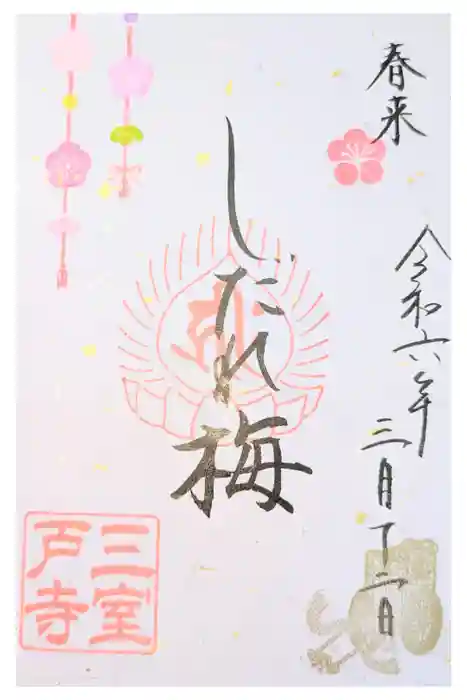 春来
令和六年三月十二日
しだれ梅
三室
戸寺